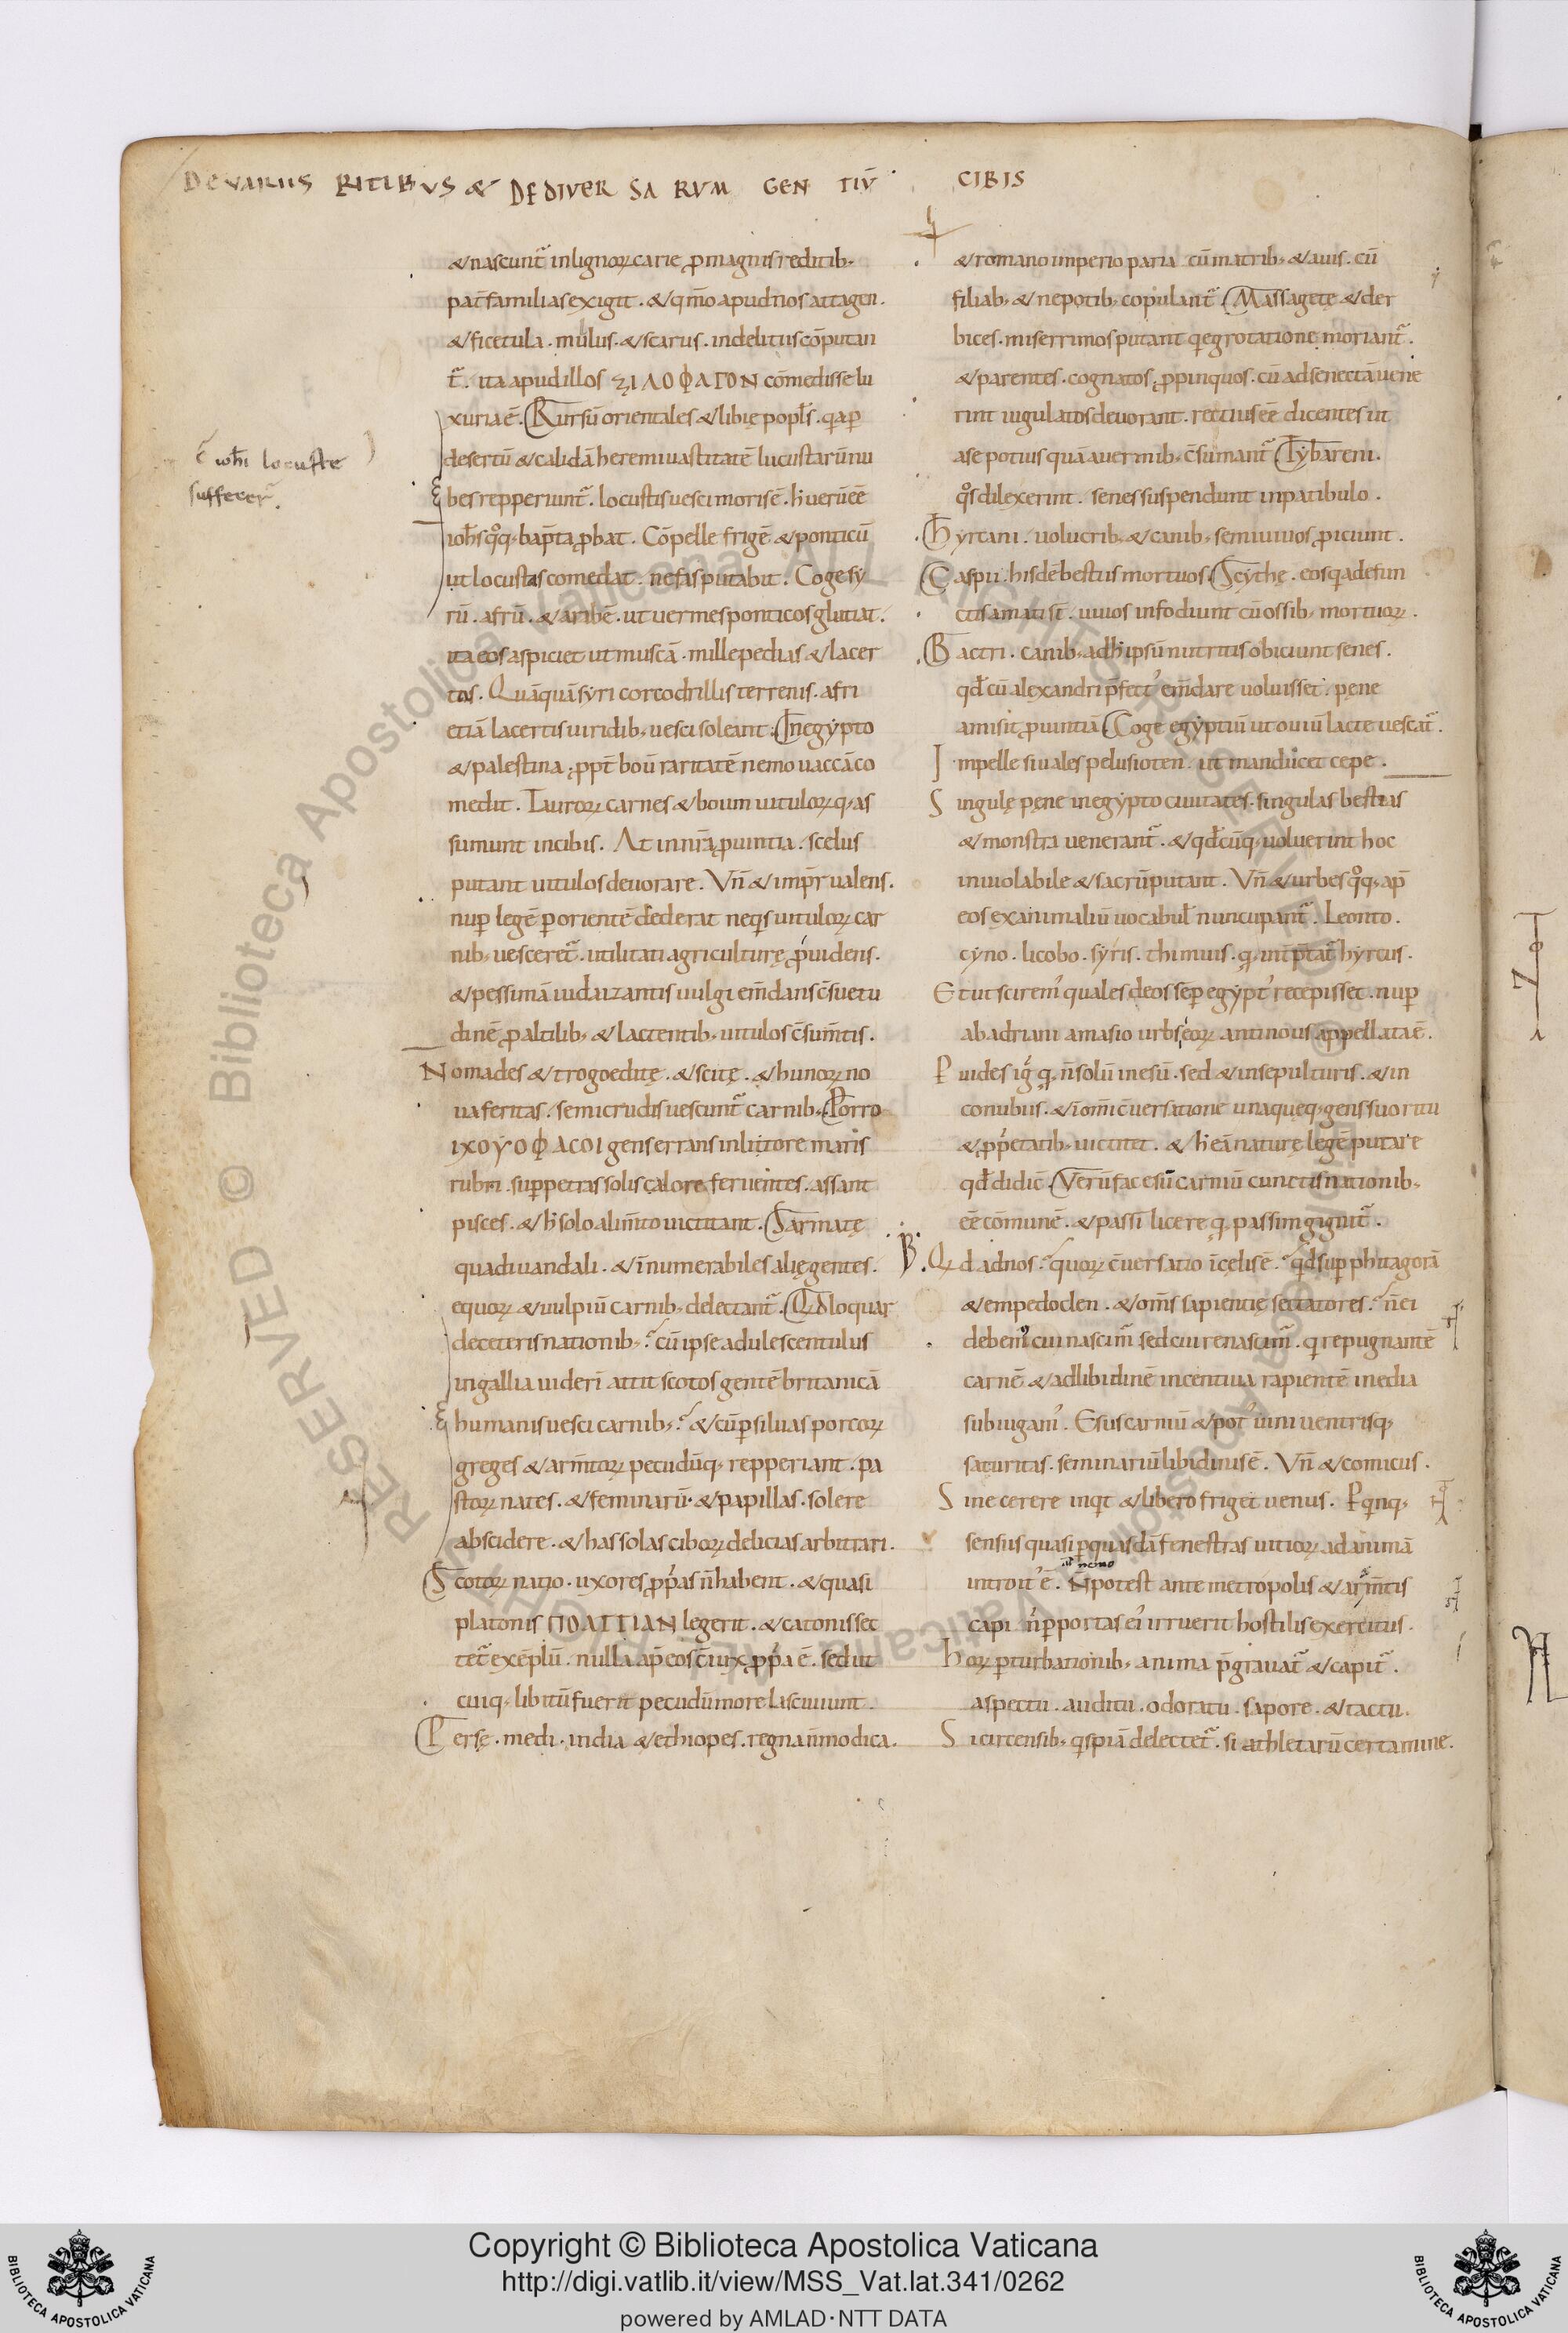 DE VARIIS RITIBUS & DE DIVERSARUM GENTIŪ CIBIS
& nascunt̃ in lignorꝝ carie ꝓ magnis reditib;
pat̄familias exigit. & qm̄o apud nos attagen.
& ficetula. mulus. & scarus. in delitiis cōputan
t̃. ita apud illos ΞΙΛΟΦΑΓΟΝ cōmedisse lu
xuria ē. Rursū orientales & libię popl̄s. q̄a ꝑ
desertū & calidā heremi uastitatē lucustarū nu
bes repperiunt̃. locustis uesci moris ē. h̄ uerū ēē
ioh̄s q̊q; bap̄ta ꝓbat. Cōpelle frigē & ponticū
ut locustas comedat. nefas putabit. Coge sy
rū. afrū. & arabē. ut uermes ponticos glutiat.
ita eos aspiciet ut muscā. millepedias & lacer
tos. Quāquā syri corcodrillis terrenis. afri
etiā lacertis uiridib; uesci soleant. In egypto
& palestina. ꝓpt̄ boū raritatē nemo uaccā co
medit. Taurorꝝ carnes & boum uitulorꝝ q; as
sumunt in cibis. At in nr̄a ꝓuintia. scelus
putant uitulos deuorare. Vn̄ & imp̄r ualens.
nuꝑ legē ꝑ orientē dederat ne q̄s uitulorꝝ car
nib; uesceret̃. utilitati agriculturę ꝓuidens.
& pessimā iudaizantis uulgi em̄dans c̄suetu
dinē ꝓ altilib; & lactentib; uitulos c̄sum̄tis.
Nomades & trogoeditę. & scitę. & hunorꝝ no
ua feritas. semicrudis uescunt̃ carnib; Porro
ΙΧΟΥΟΦΑCΟΙ gens errans in littore maris
rubri. suꝑ petras solis calore feruentes. assant
pisces. & h̄ solo alim̄to uictitant. Sarmatę
quadi uandali. & īnumerabiles alię gentes.
equorꝝ & uulpiū carnib; delectant̃. Qđ loquar
de ceteris nationib; cū ipse adulescentulus
in gallia uiderī attit scotos gentē britanicā
humanis uesci carnib; & cū ꝑ siluas porcorꝝ
greges & arm̄torꝝ pecudūq; repperiant. pa
storꝝ nates. & feminarū. & papillas. solere
abscidere. & has solas ciborꝝ delicias arbitrari.
Scotorꝝ natio. uxores ꝓp̄as n̄ habent. & quasi
platonis ΠΟΛΙΤΙΑΝ legerit. & catonis sec
tet̃ exēplū. nulla ap̄ eos c̄iunx ꝓp̄a ē. sed ut
cuiq; libitū fuerit pecudū more lasciuiunt.
Persę. medi. india & ethiopes. regna n̄ modica.
ē ioh̄i locuste
suffecer̃.
& romano imperio paria cū matrib; & auis. cū
filiab; & nepotib; copulant̃. Massagetę & der
bices. miserrimos putant q̄ egrotatione moriant̃.
& parentes. cognatos, ꝓpinquos. cū ad senectā uene
rint iugulatos deuorant. rectius ēē dicentes ut
a se potius quā a uermib; c̄sumant̃ Tybareni.
q̊s dilexerint. senes suspendunt in patibulo.
Hyrcani. uolucrib; & canib; semiuiuos ꝓiciunt.
Caspii. hisdē bestiis mortuos. Scythę. eos q̄ a defun
ctis amati s̄t. uiuos infodiunt cū ossib; mortuorꝝ.
Bactri. canib; ad h̄ ipsū nutritis obiciunt senes.
qđ cū alexandri p̄fect᾽ em̄dare uoluisset. pęne
amisit ꝓuintiā Coge egyptiū ut ouiū lacte uescat̃.
Impelle si uales pelusioten. ut manducet cepe.
Singulę pęne in egypto ciuitates. singulas bestias
& monstra uenerant̃. & qđcūq; uoluerint hoc
inuiolabile & sacrū putant. Vn̄ & urbes q̊q; ap̄
eos ex animaliū uocabul̄ nuncupant̃. Leonto.
cyno. licobo. syris. thimuis. q̄ int̄p̄tat̃ hyrcus.
Et ut scirem᾽ quales deos seꝑ egypt᾽ recepisset. nuꝑ
ab adriani amasio urbs eorꝝ antinous appellata ē.
Puides iḡ q̄ n̄ solū in esū. sed & in sepulturis. & in
conubiis. & ī om̄i c̄uersatione unaqueq; gens suo ritu
& ꝓp̄etatib; uictitet. & h̄ eā naturę legē putare
qđ didic̄. Verū fac esū carniū cunctis nationib;
ēē cōmunē. & passī licere q̄ passim gignit̃.
Qđ ad nos. quorꝝ c̄uersatio ī cęlis ē. qđ suꝑ phitagorā
& empedoclen. & om̄s sapientię sectatores. n̄ ei
debem᾽ cui nascim̃ sed cui renascim̃. q̄ repugnantē
carnē & ad libidinē incentiua rapientē inedia
subiugam᾽. Esus carniū & pot᾽ uini uentrisq;
saturitas. seminariū libidinis ē. Vn̄ & comicus.
Sine cerere inqt & libero friget uenus. P qnq;
sensus quasi ꝑ quasdā fenestras uitiorꝝ ad animā
introit᾽ ē. N̄ potest ante metropolis & arm̄tis
capi n̄ ꝑ portas ei᾽ irruerit hostilis exercitus.
Horꝝ ꝑturbationib; anima p̄grauat̃ & capit̃.
aspectu. auditu. odoratu. sapore. & tactu.
Si circensib; q̄spiā delectet̃. si athletarū certamine.
nemo
Copyright © Biblioteca Apostolica Vaticana
http://digi.vatlib.it/view/MSS_Vat.lat.341/0262
powered by AMLAD·NTT DATA
BIBLIOTECA APOSTOLICA VATICANA
BIBLIOTECA APOSTOLICA VATICANA